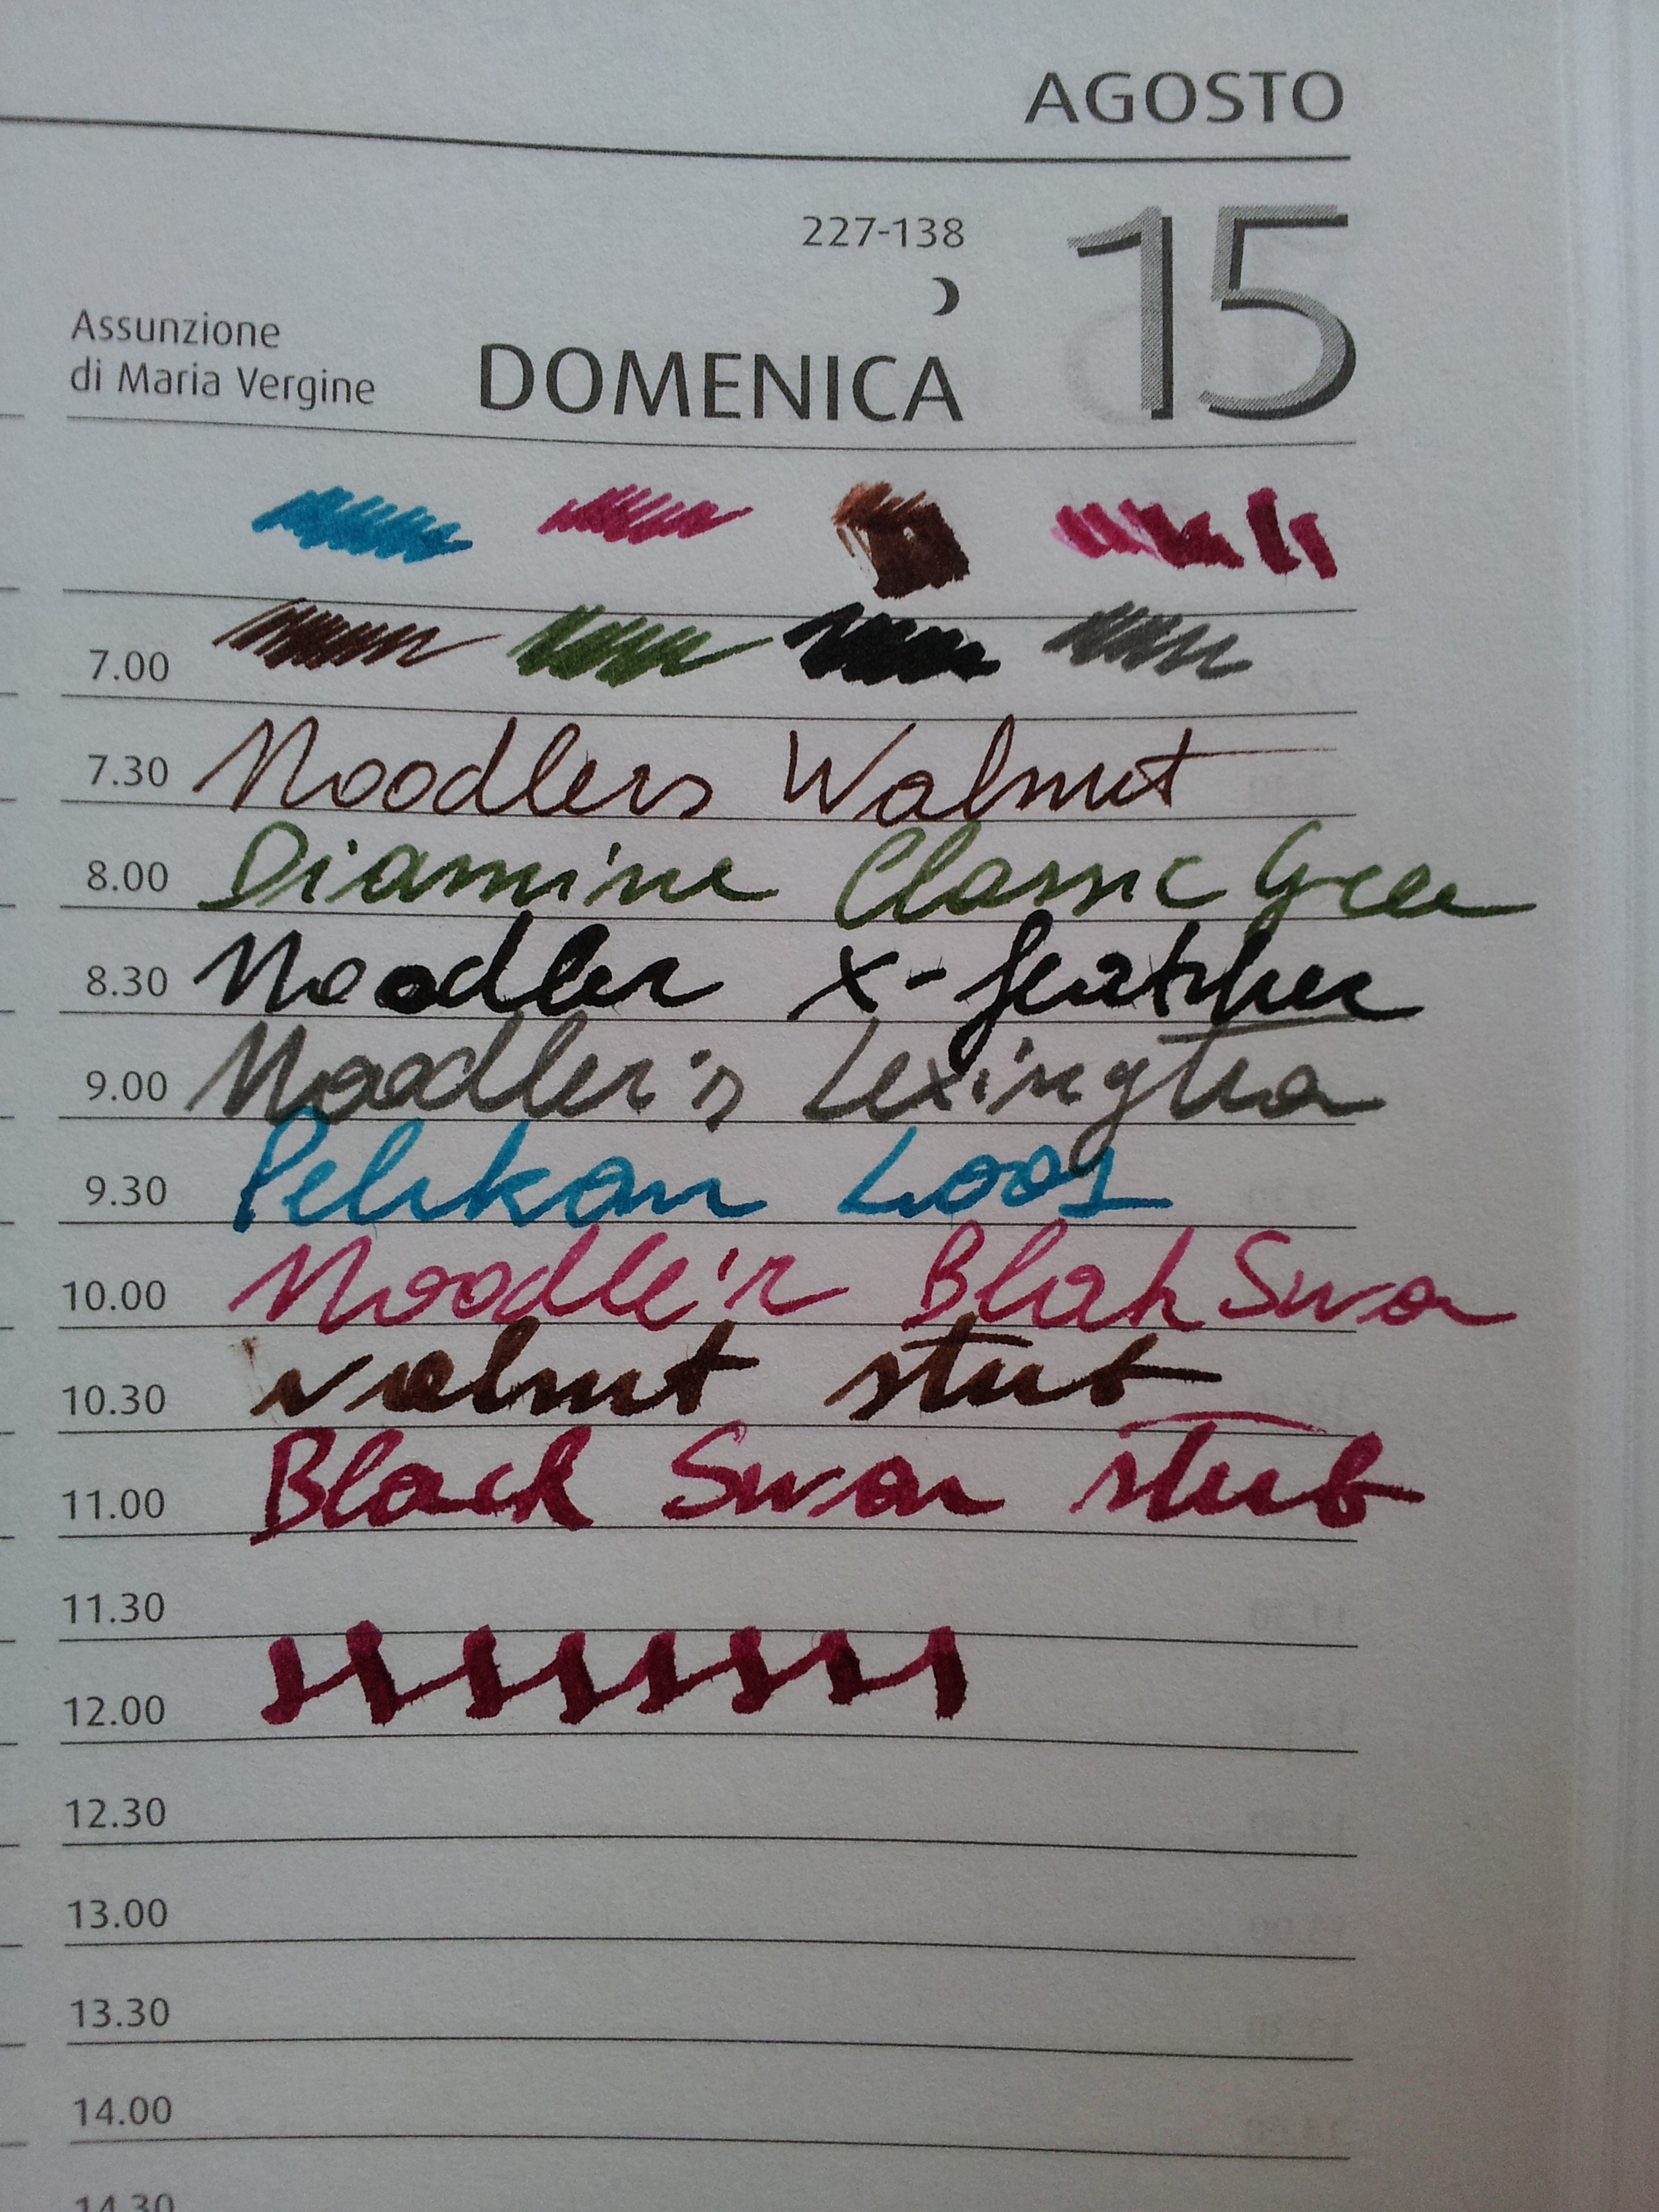 AGOSTO
227-138
15
Assunzione
di Maria Vergine
DOMENICA
7.00
7.30 Noodlers Walnut
8.00 Diamine Classic Green
8.30 Noodler x-feather
9.00 Noodler's Lexington
9.30 Pelikan Loos
10.00 Noodle'r Blak Swan
10.30 walnut stub
11.00 Black Swan stub
11.30
12.00
12.30
13.00
13.30
14.00
14.30